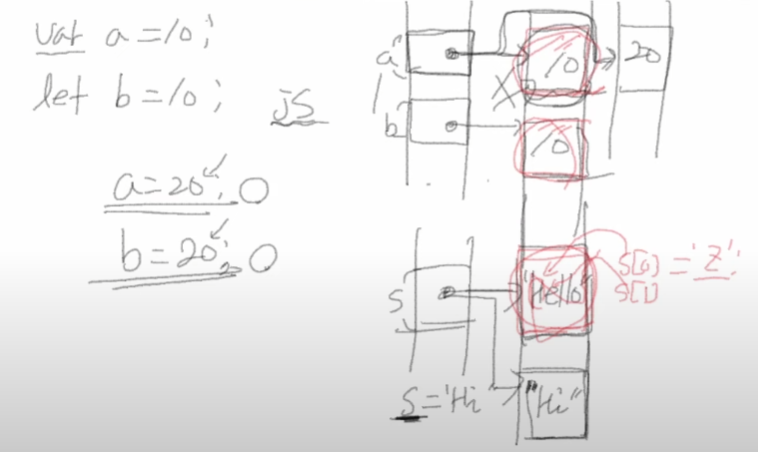 var a = 10;
let b = 10;
js
a = 20; O
b = 20; O
a
10
20
b
10
s
"Hello"
s[0] = 'Z';
s[1]
s = 'Hi'
"Hi"